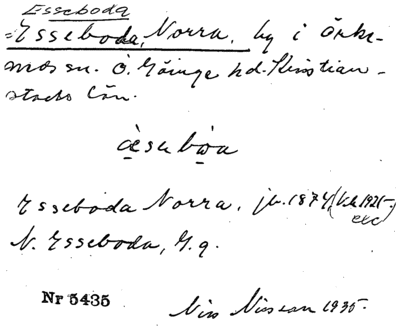 Esseboda
=Esseboda, Norra, by i Örke-
neds sn. Ö. Göinge hd. Kristian-
stads län.
Esseboda Norra, jb. 1874, (kb 1925-
etc)
N. Esseboda, G.q.
Nr 5435
Nils Nilsson 1935.